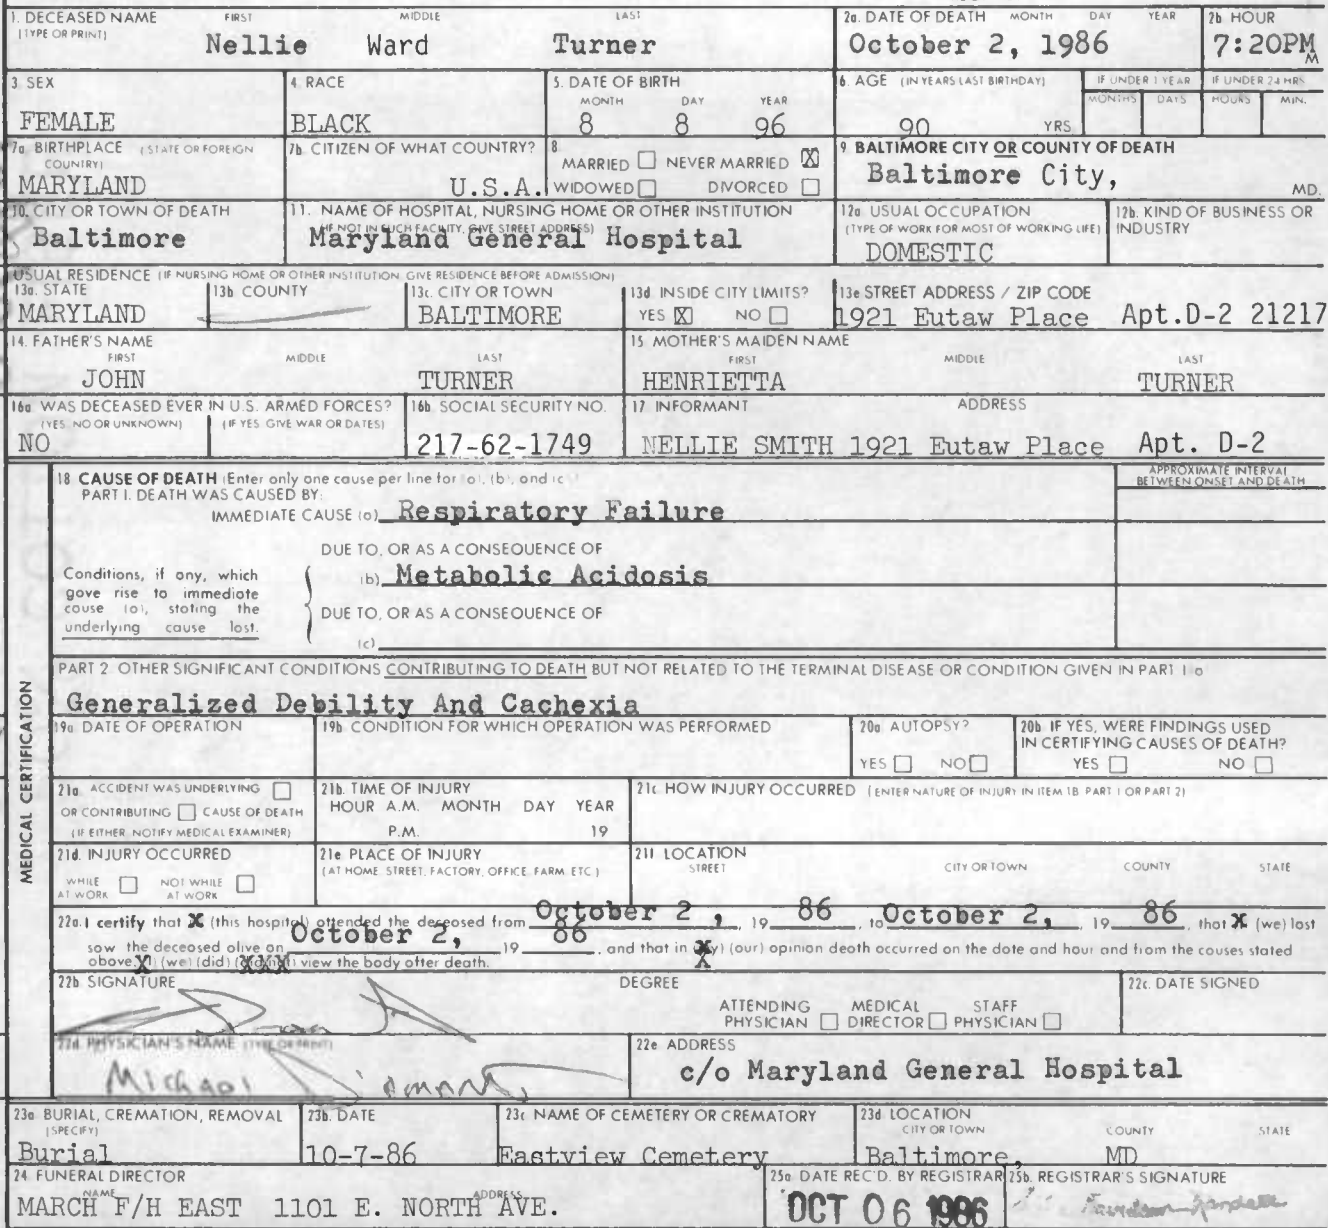 1. DECEASED NAME (TYPE OR PRINT) FIRST MIDDLE LAST
Nellie Ward Turner
2a. DATE OF DEATH MONTH DAY YEAR
October 2, 1986
2b HOUR
7:20PM M
3 SEX
FEMALE
4 RACE
BLACK
5. DATE OF BIRTH
MONTH DAY YEAR
8 8 96
6. AGE (IN YEARS LAST BIRTHDAY)
90 YRS
IF UNDER 1 YEAR
MONTHS DAYS
IF UNDER 24 HRS
HOURS MIN.
7a BIRTHPLACE (STATE OR FOREIGN COUNTRY)
MARYLAND
7b CITIZEN OF WHAT COUNTRY?
U.S.A.
8
MARRIED ☐ NEVER MARRIED ☒
WIDOWED ☐ DIVORCED ☐
9 BALTIMORE CITY OR COUNTY OF DEATH
Baltimore City, MD.
10. CITY OR TOWN OF DEATH
Baltimore
11. NAME OF HOSPITAL, NURSING HOME OR OTHER INSTITUTION
(IF NOT IN SUCH FACILITY, GIVE STREET ADDRESS)
Maryland General Hospital
12a USUAL OCCUPATION
(TYPE OF WORK FOR MOST OF WORKING LIFE)
DOMESTIC
12b. KIND OF BUSINESS OR INDUSTRY
USUAL RESIDENCE (IF NURSING HOME OR OTHER INSTITUTION GIVE RESIDENCE BEFORE ADMISSION)
13a. STATE
MARYLAND
13b COUNTY
13c. CITY OR TOWN
BALTIMORE
13d INSIDE CITY LIMITS?
YES ☒ NO ☐
13e STREET ADDRESS / ZIP CODE
1921 Eutaw Place Apt.D-2 21217
14. FATHER'S NAME
FIRST MIDDLE LAST
JOHN TURNER
15 MOTHER'S MAIDEN NAME
FIRST MIDDLE LAST
HENRIETTA TURNER
16a WAS DECEASED EVER IN U.S. ARMED FORCES?
(YES, NO OR UNKNOWN) (IF YES GIVE WAR OR DATES)
NO
16b SOCIAL SECURITY NO.
217-62-1749
17 INFORMANT ADDRESS
NELLIE SMITH 1921 Eutaw Place Apt. D-2
MEDICAL CERTIFICATION
18 CAUSE OF DEATH (Enter only one cause per line for (a), (b), and (c)
PART I. DEATH WAS CAUSED BY:
APPROXIMATE INTERVAL BETWEEN ONSET AND DEATH
IMMEDIATE CAUSE (a) Respiratory Failure
DUE TO, OR AS A CONSEQUENCE OF
Conditions, if any, which gave rise to immediate cause (a), stating the underlying cause last.
(b) Metabolic Acidosis
DUE TO, OR AS A CONSEQUENCE OF
(c)
PART 2 OTHER SIGNIFICANT CONDITIONS CONTRIBUTING TO DEATH BUT NOT RELATED TO THE TERMINAL DISEASE OR CONDITION GIVEN IN PART 1 a
Generalized Debility And Cachexia
19a DATE OF OPERATION
19b CONDITION FOR WHICH OPERATION WAS PERFORMED
20a AUTOPSY?
YES ☐ NO ☐
20b IF YES, WERE FINDINGS USED IN CERTIFYING CAUSES OF DEATH?
YES ☐ NO ☐
21a ACCIDENT WAS UNDERLYING ☐
OR CONTRIBUTING ☐ CAUSE OF DEATH
(IF EITHER NOTIFY MEDICAL EXAMINER)
21b. TIME OF INJURY
HOUR A.M. MONTH DAY YEAR
P.M. 19
21c HOW INJURY OCCURRED (ENTER NATURE OF INJURY IN ITEM 18 PART 1 OR PART 2)
21d. INJURY OCCURRED
WHILE AT WORK ☐ NOT WHILE AT WORK ☐
21e PLACE OF INJURY
(AT HOME STREET, FACTORY, OFFICE FARM ETC)
21f LOCATION
STREET CITY OR TOWN COUNTY STATE
22a. I certify that X (this hospital) attended the deceased from October 2, 19 86, to October 2, 19 86, that X (we) last
saw the deceased alive on October 2, 19 86, and that in (my) (our) opinion death occurred on the date and hour and from the causes stated
above. X (we) (did) (XXX) view the body after death.
22b SIGNATURE DEGREE
ATTENDING PHYSICIAN ☐ MEDICAL DIRECTOR ☐ STAFF PHYSICIAN ☐
22c. DATE SIGNED
22d PHYSICIAN'S NAME (TYPE OR PRINT)
Michael
22e ADDRESS
c/o Maryland General Hospital
23a BURIAL, CREMATION, REMOVAL (SPECIFY)
Burial
23b. DATE
10-7-86
23c NAME OF CEMETERY OR CREMATORY
Eastview Cemetery
23d LOCATION
CITY OR TOWN COUNTY STATE
Baltimore, MD
24 FUNERAL DIRECTOR
NAME ADDRESS
MARCH F/H EAST 1101 E. NORTH AVE.
25a DATE REC'D. BY REGISTRAR
OCT 06 1986
25b. REGISTRAR'S SIGNATURE